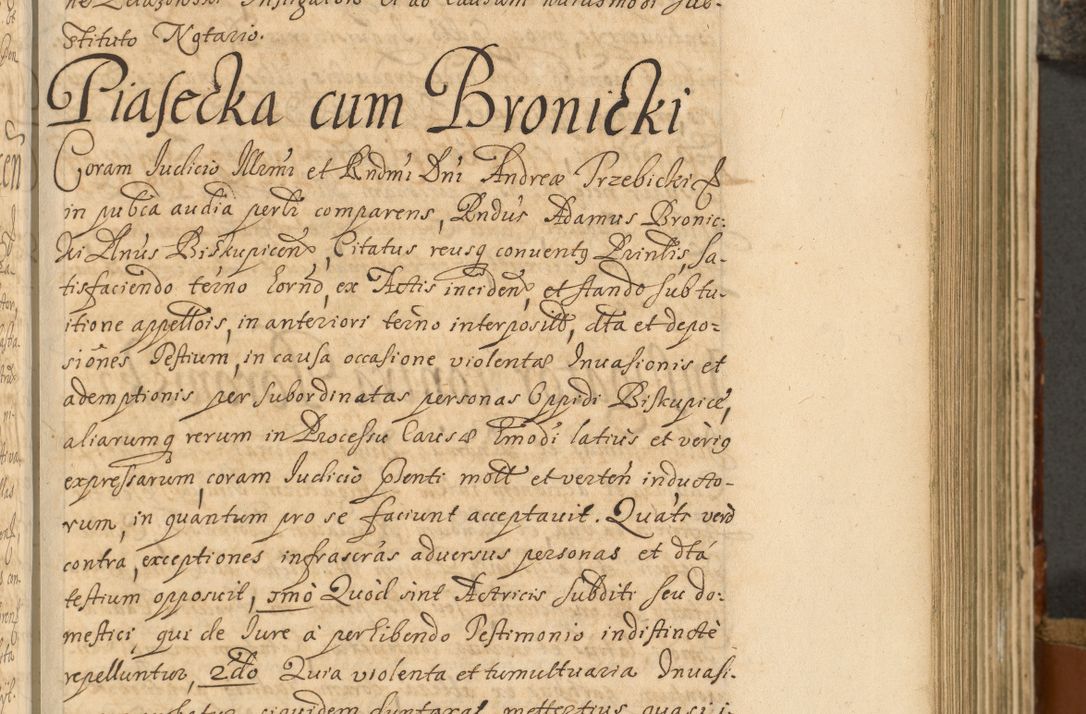 stituto Notario.
Piasecka cum Bronicki
Coram Judicio Illrmi et Rndmi Dni Andreæ Trzebicki
in pubca audia perli comparens, Rndus Adamus Bronic-
ki Plnus Biskupicen, Citatus reusq conventq Prinlis, sa-
tisfaciendo termo horno, ex Actis inciden, et stando sub tu-
itione appellois, in anteriori termo interposit, dta et depo-
siones Testium, in causa occasione violentæ Invasionis et
ademptionis per subordinatas personas Oppidi Biskupice,
aliarumq rerum in Processu Causæ hmodi latius et veriq
expressarum, coram Judicio pnti mott et verten inducto-
rum, in quantum pro se faciunt acceptavit. Quats vero
contra, exceptiones infrascras adversus personas et dta
testium opposuit, 1mo Quod sint Actricis subditi seu do-
mestici, qui de Jure a perhibendo Testimonio indistincte
repelluntur, 2do Quia violenta et tumultuaria Invasi-